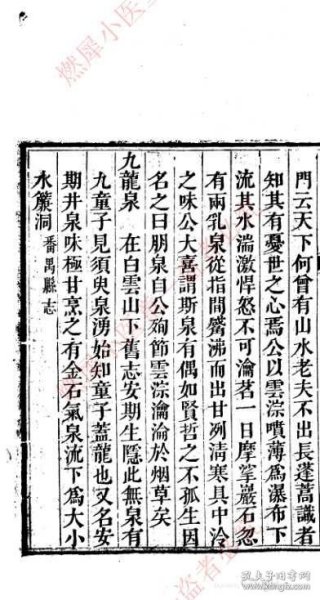 門云天下何曾有山水老夫不出長蓬蒿識者
知其有憂世之心焉公以雲淙噴薄為瀑布下
流其水湍激悍怒不可瀹茗一日摩挲巖石忽
有兩乳泉從指間觱沸而出甘列清寒具中泠
之味公大喜謂斯泉有偶如賢哲之不孤生因
名之曰朋泉自公殉節雲淙瀹淪於烟草矣
九龍泉 在白雲山下舊志安期生隱此無泉有
九童子見須臾泉湧始知童子蓋龍也又名安
期井泉味極甘烹之有金石氣泉流下為大小
水簾洞 番禺縣志
燃犀小医
盗者